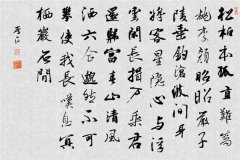 松柏本孤直難為
桃李顏昭昭嚴子
陵垂釣滄波間身
將客星隱心與浮
雲閑長揖萬乘君
還歸富春山清風
洒六合邈然不可
攀使我長嘆息冥
棲巖石間